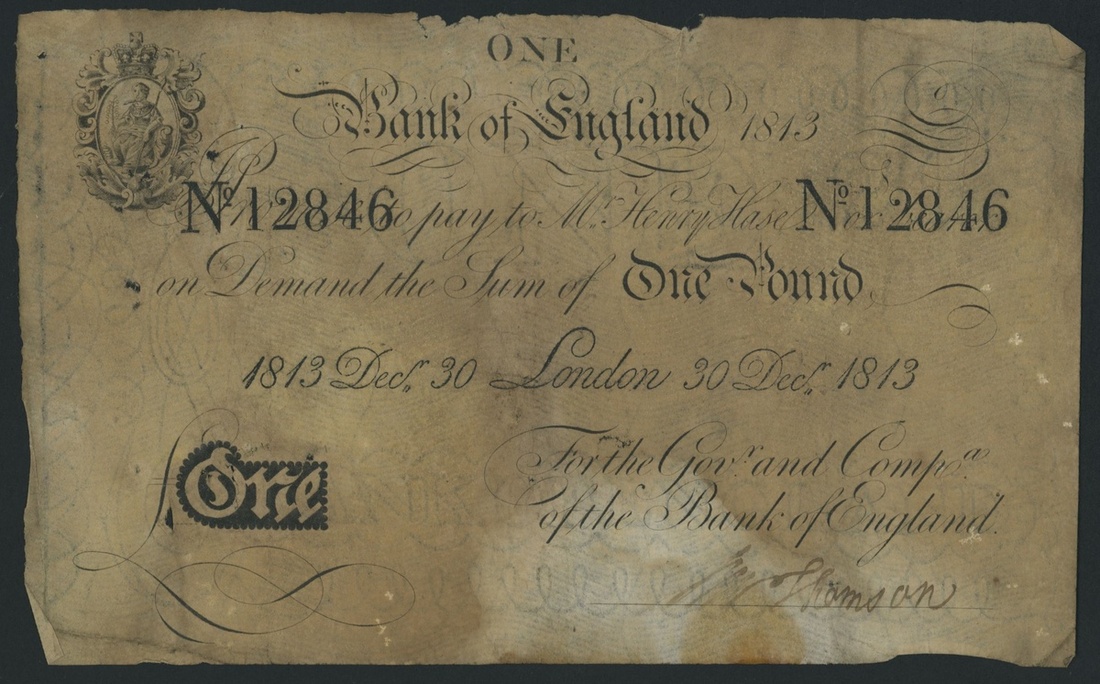 ONE
Bank of England 1813
No 12846 to pay to Mr. Henry Hase No 12846
on Demand the Sum of One Pound
1813 Decr. 30 London 30 Decr. 1813
For the Govr. and Compa.
of the Bank of England.
£ One
Thomson